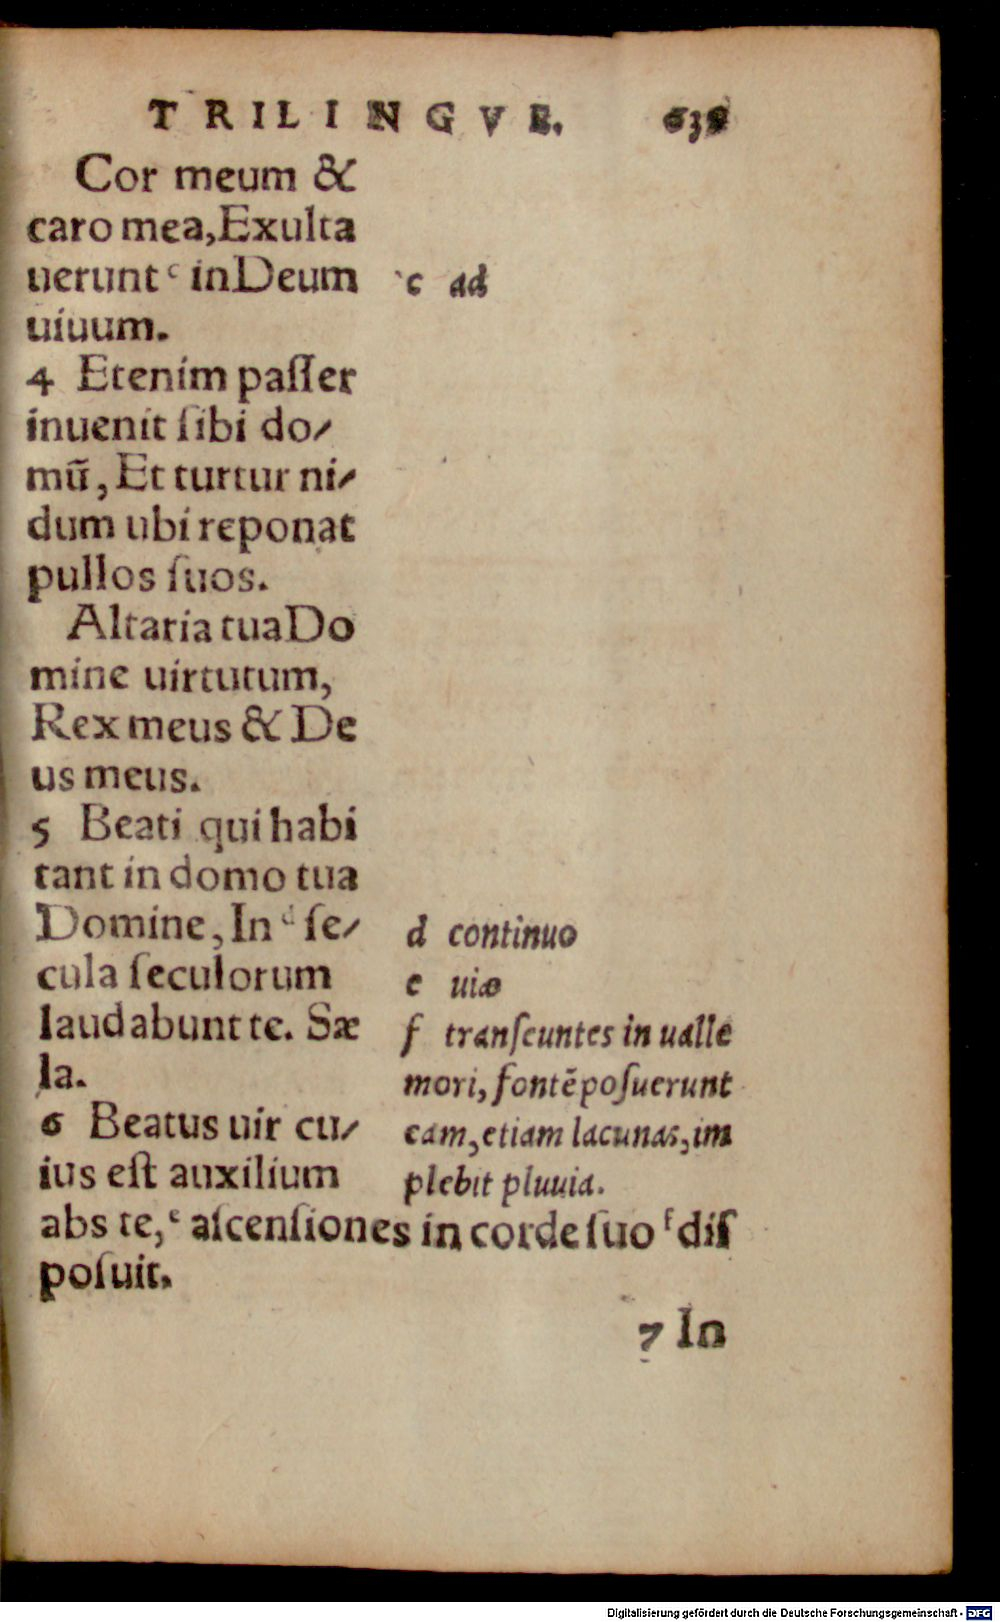 TRILINGVE. 639
Cor meum &
caro mea, Exulta
uerunt ᶜ in Deum
uiuum.
4 Etenim paſſer
inuenit ſibi do⸗
mū, Et turtur ni⸗
dum ubi reponat
pullos ſuos.
Altaria tua Do
mine uirtutum,
Rex meus & De
us meus.
5 Beati qui habi
tant in domo tua
Domine, In ᵈ ſe⸗
cula ſeculorum
laudabunt te. Sæ
la.
6 Beatus uir cu⸗
ius eſt auxilium
abs te, ᵉ aſcenſiones in corde ſuo ᶠ diſ
poſuit.
c ad
d continuo
e uiæ
f tranſeuntes in ualle
mori, fontē poſuerunt
eam, etiam lacunas, im
plebit pluuia.
7 In
Digitalisierung gefördert durch die Deutsche Forschungsgemeinschaft - DFG